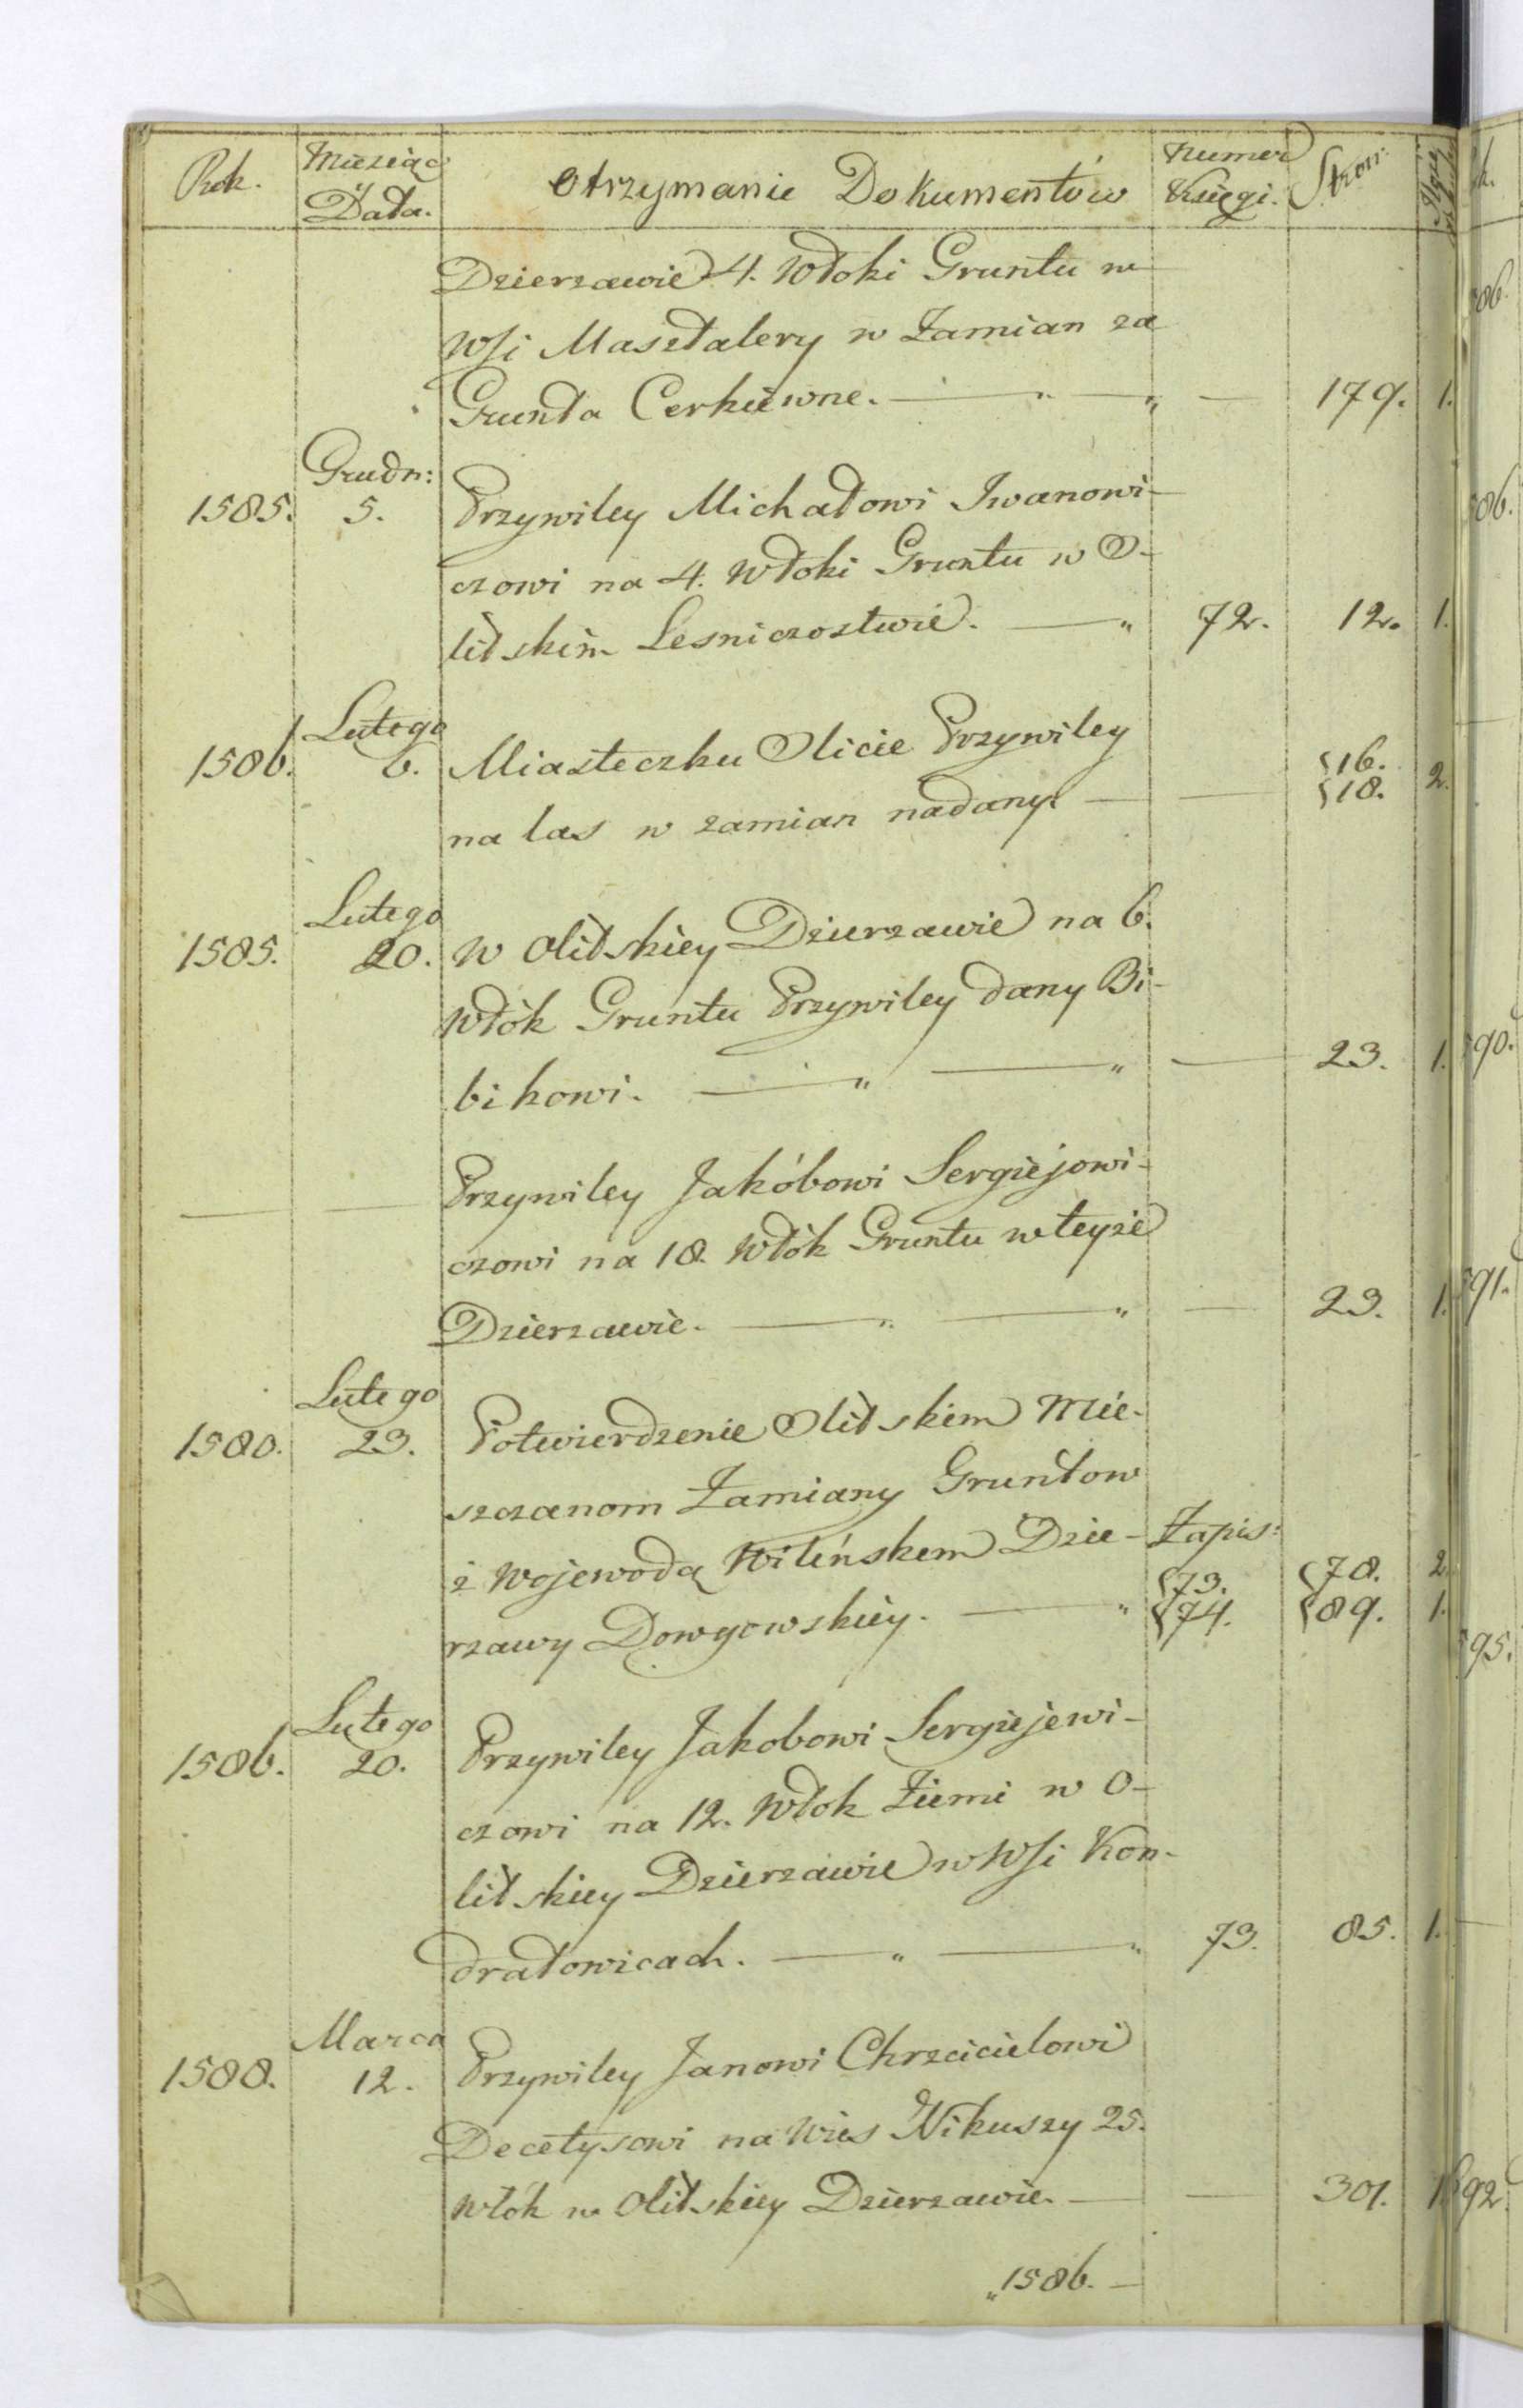 Rok. Miesiąc Otrzymanie Dokumentów Numer Stron:
i Data. Księgi.
Dzierzawie 4. Włoki Gruntu w
Wsi Masztalery w Zamian za
Grunta Cerkiewne. — " — " — 179. 1.
Grudn:
1585. 5. Przywiley Michałowi Iwanowi-
czowi na 4. Włoki Gruntu w O-
litskim Lesniczostwie. — " 72. 12. 1.
Lutego
1586. 6. Miasteczku Olicie Przywiley {16. 2.
na las w zamian nadany. — — {18.
Lutego
1585. 20. W Olitskiey Dzierzawie na 6.
Włók Gruntu Przywiley dany Bi-
bikowi. — " — " — 23. 1.
— — Przywiley Jakóbowi Sergiejowi-
czowi na 18. Włók Gruntu w teyze
Dzierzawie. — " — " — 23. 1.
Lutego
1580. 23. Potwierdzenie Olitskim Mie-
szczanom Zamiany Gruntow
z Wojewodą Wileńskem Dzie- Zapis:
{73. {78. 2.
rzawy Dowgowskiey. — " {74. {89. 1.
Lutego
1586. 20. Przywiley Jakobowi Sergiejewi-
czowi na 12. Włok Ziemi w O-
litskiey Dzierzawie w Wsi Kon-
dratowicach. — " — " 73. 85. 1.
Marca
1588. 12. Przywiley Janowi Chrzcicielowi
Decetysowi na Wies Nikuszy 25.
Włók w Olitskiey Dzierzawie. — — 301. 1.
"1586. —